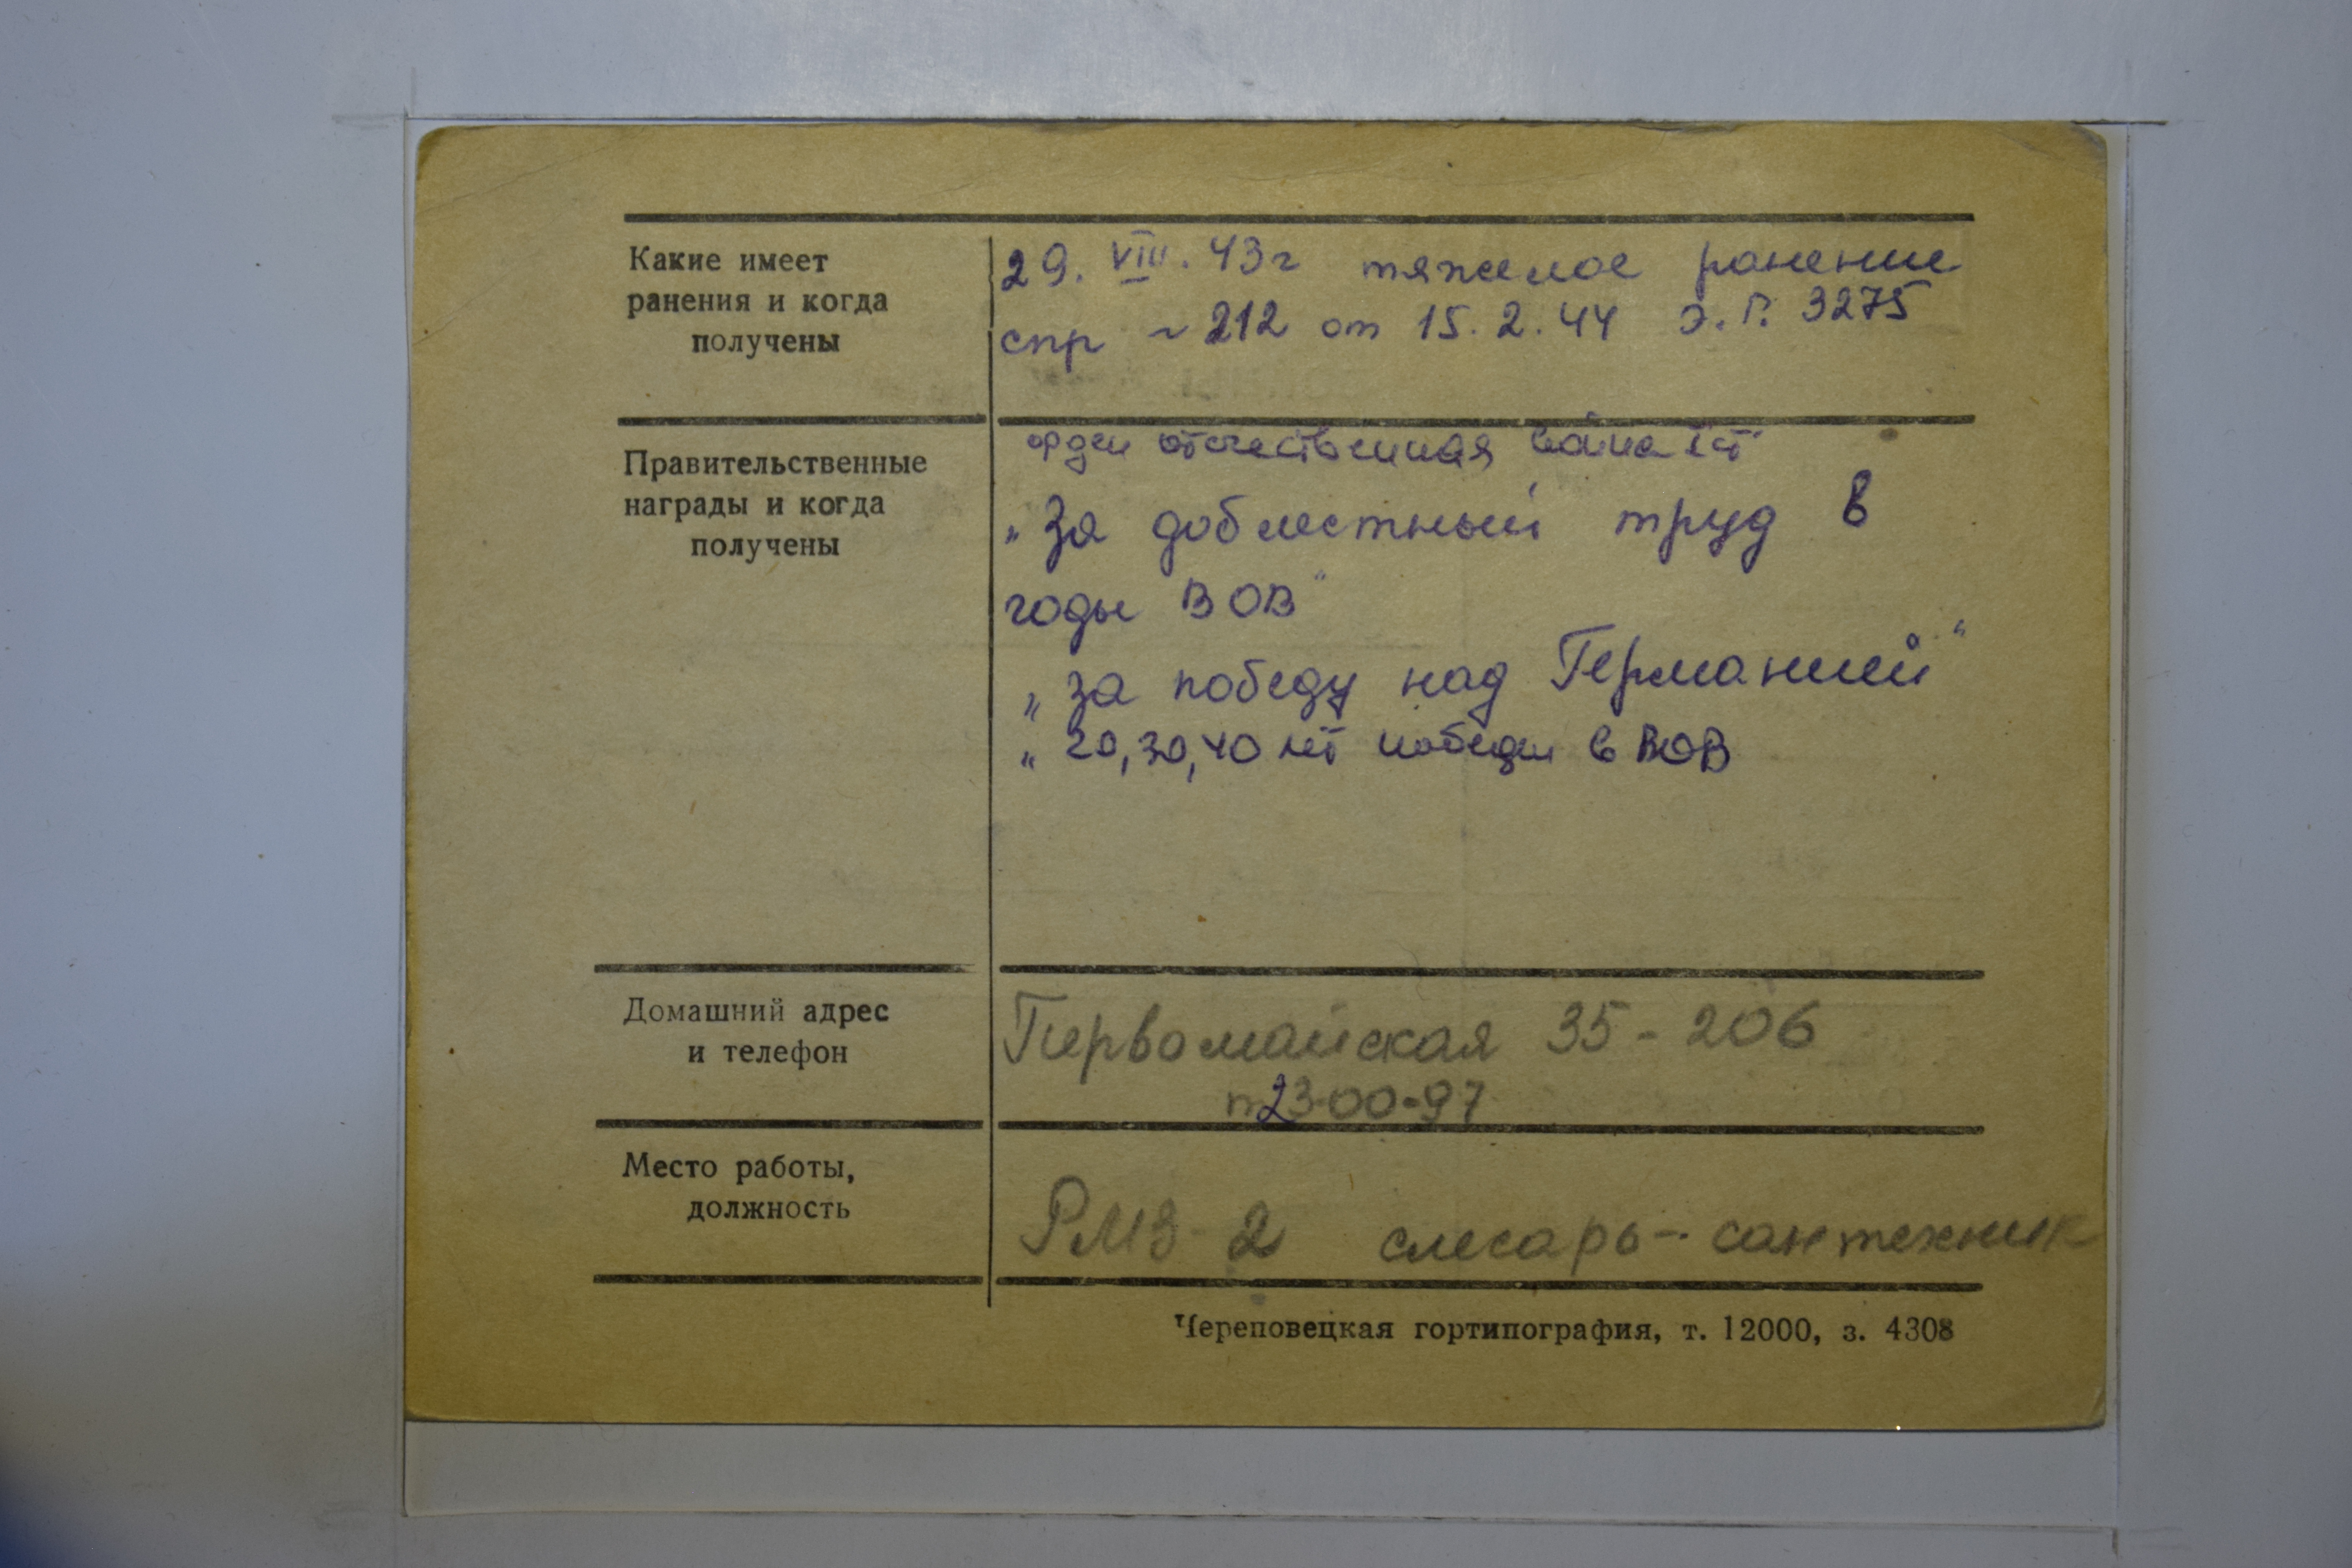 Какие имеет
ранения и когда
получены
29. VIII. 43г тяжелое ранение
спр ~ 212 от 15.2.44 э.Г. 3275
Правительственные
награды и когда
получены
орден отечественная война I ст
„За доблестный труд в
годы ВОВ"
„за победу над Германией"
„ 20,30,40 лет победы в ВОВ
Домашний адрес
и телефон
Первомайская 35-206
т 23-00-97
Место работы,
должность
РМЗ-2 слесарь-сантехник
Череповецкая гортипография, т. 12000, з. 4308